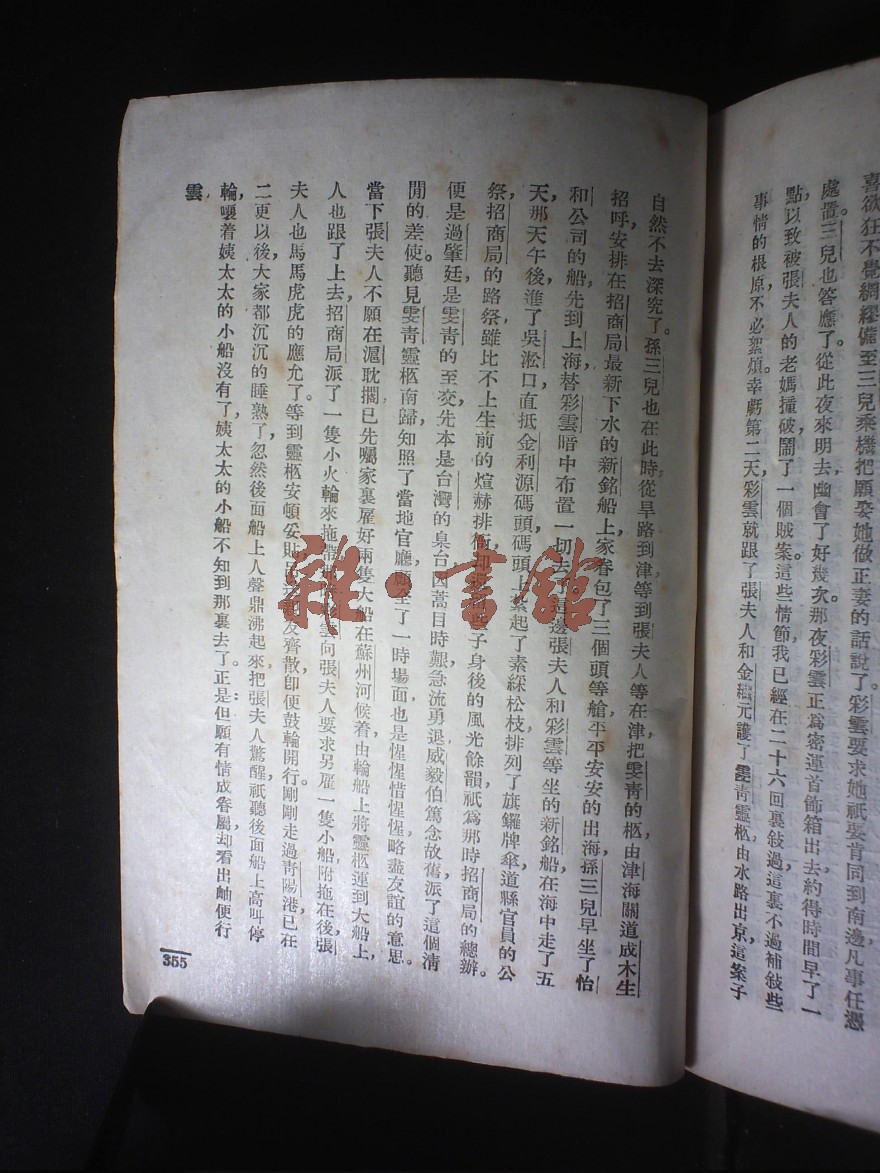 喜欲狂不覺綢繆備至三兒乘機把願娶她做正妻的話說了彩雲要求她祇要肯同到南邊凡事任憑
處置三兒也答應了。從此夜來明去幽會了好幾次那夜彩雲正為密運首飾箱出去約得時間早了一
點以致被張夫人的老媽撞破鬧了一個賊案。這些情節我已經在二十六回裏敍過這裏不過補敍些
事情的根原不必絮煩。幸虧第二天彩雲就跟了張夫人和金繼元護了雯青靈柩由水路出京這案子
自然不去深究了。孫三兒也在此時從旱路到津等到張夫人等在津把雯青的柩由津海關道成木生
招呼安排在招商局最新下水的新銘船上家眷包了三個頭等艙平平安安的出海孫三兒早坐了怡
和公司的船先到上海替彩雲暗中布置一切去了這邊張夫人和彩雲等坐的新銘船在海中走了五
天那天午後進了吳淞口直抵金利源碼頭碼頭上紮起了素綵松枝排列了旗鑼牌傘道縣官員的公
祭招商局的路祭雖比不上生前的煊赫排衙却 些子身後的風光餘韻祇為那時招商局的總辦
便是過肇廷是雯青的至交先本是台灣的臬台因蒿目時艱急流勇退威毅伯篤念故舊派了這個清
閒的差使。聽見雯青靈柩南歸知照了當地官廳顧全了一時場面也是惺惺惜惺惺略盡友誼的意思。
當下張夫人不願在滬耽擱已先囑家裏雇好兩隻大船在蘇州河候着由輪船上將靈柩運到大船上
人也跟了上去招商局派了一隻小火輪來拖帶 彩雲向張夫人要求另雇一隻小船附拖在後張
夫人也馬馬虎虎的應允了。等到靈柩安頓妥貼 親友齊散即便鼓輪開行。剛剛走過青陽港已在
二更以後大家都沉沉的睡熟了忽然後面船上人聲鼎沸起來把張夫人驚醒祇聽後面船上高叫停
輪嚷着姨太太的小船沒有了姨太太的小船不知到那裏去了。正是但願有情成眷屬却看出岫便行
雲
355
雜·書館